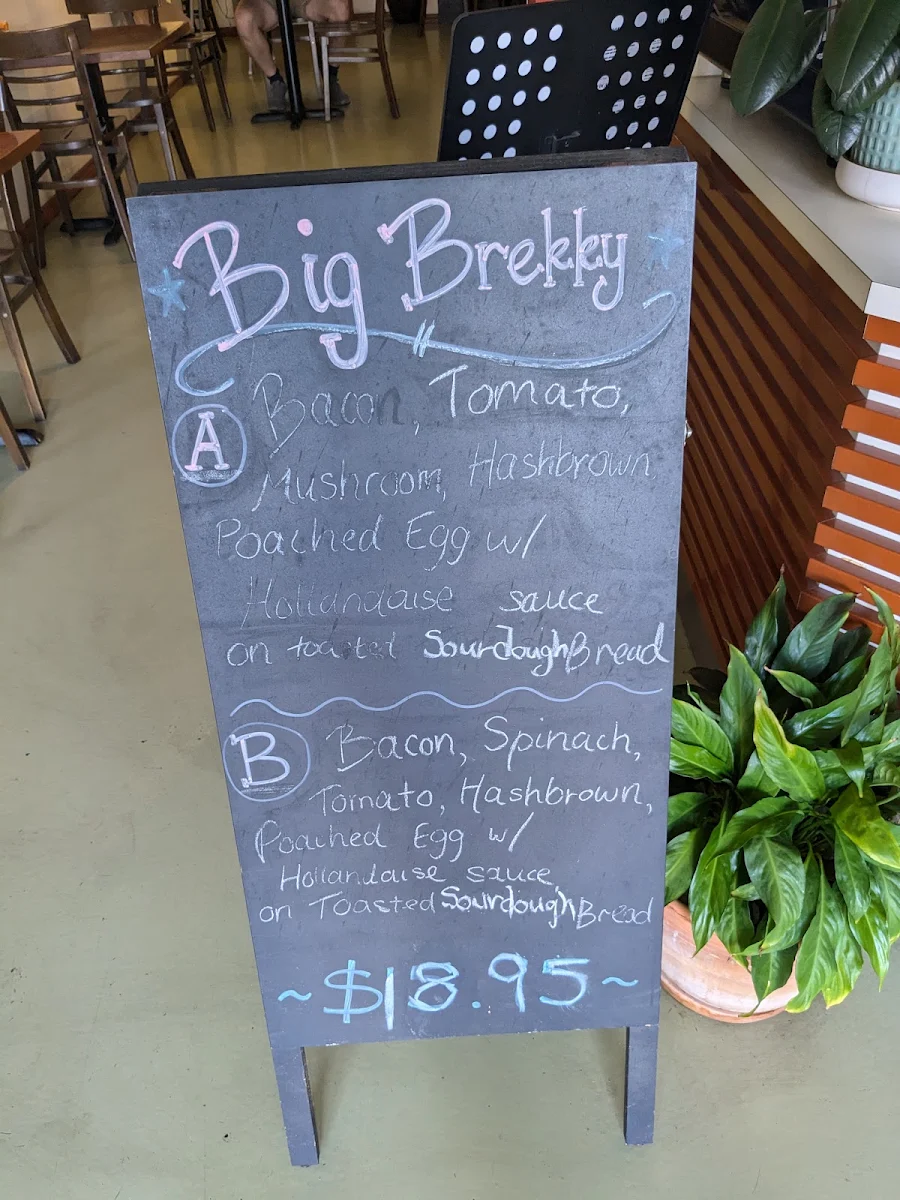 Big Brekky
A Bacon, Tomato,
Mushroom, Hashbrown
Poached Egg w/
Hollandaise sauce
on toasted Sourdough Bread
B Bacon, Spinach,
Tomato, Hashbrown,
Poached Egg w/
Hollandaise sauce,
on Toasted Sourdough Bread
~ $18.95 ~